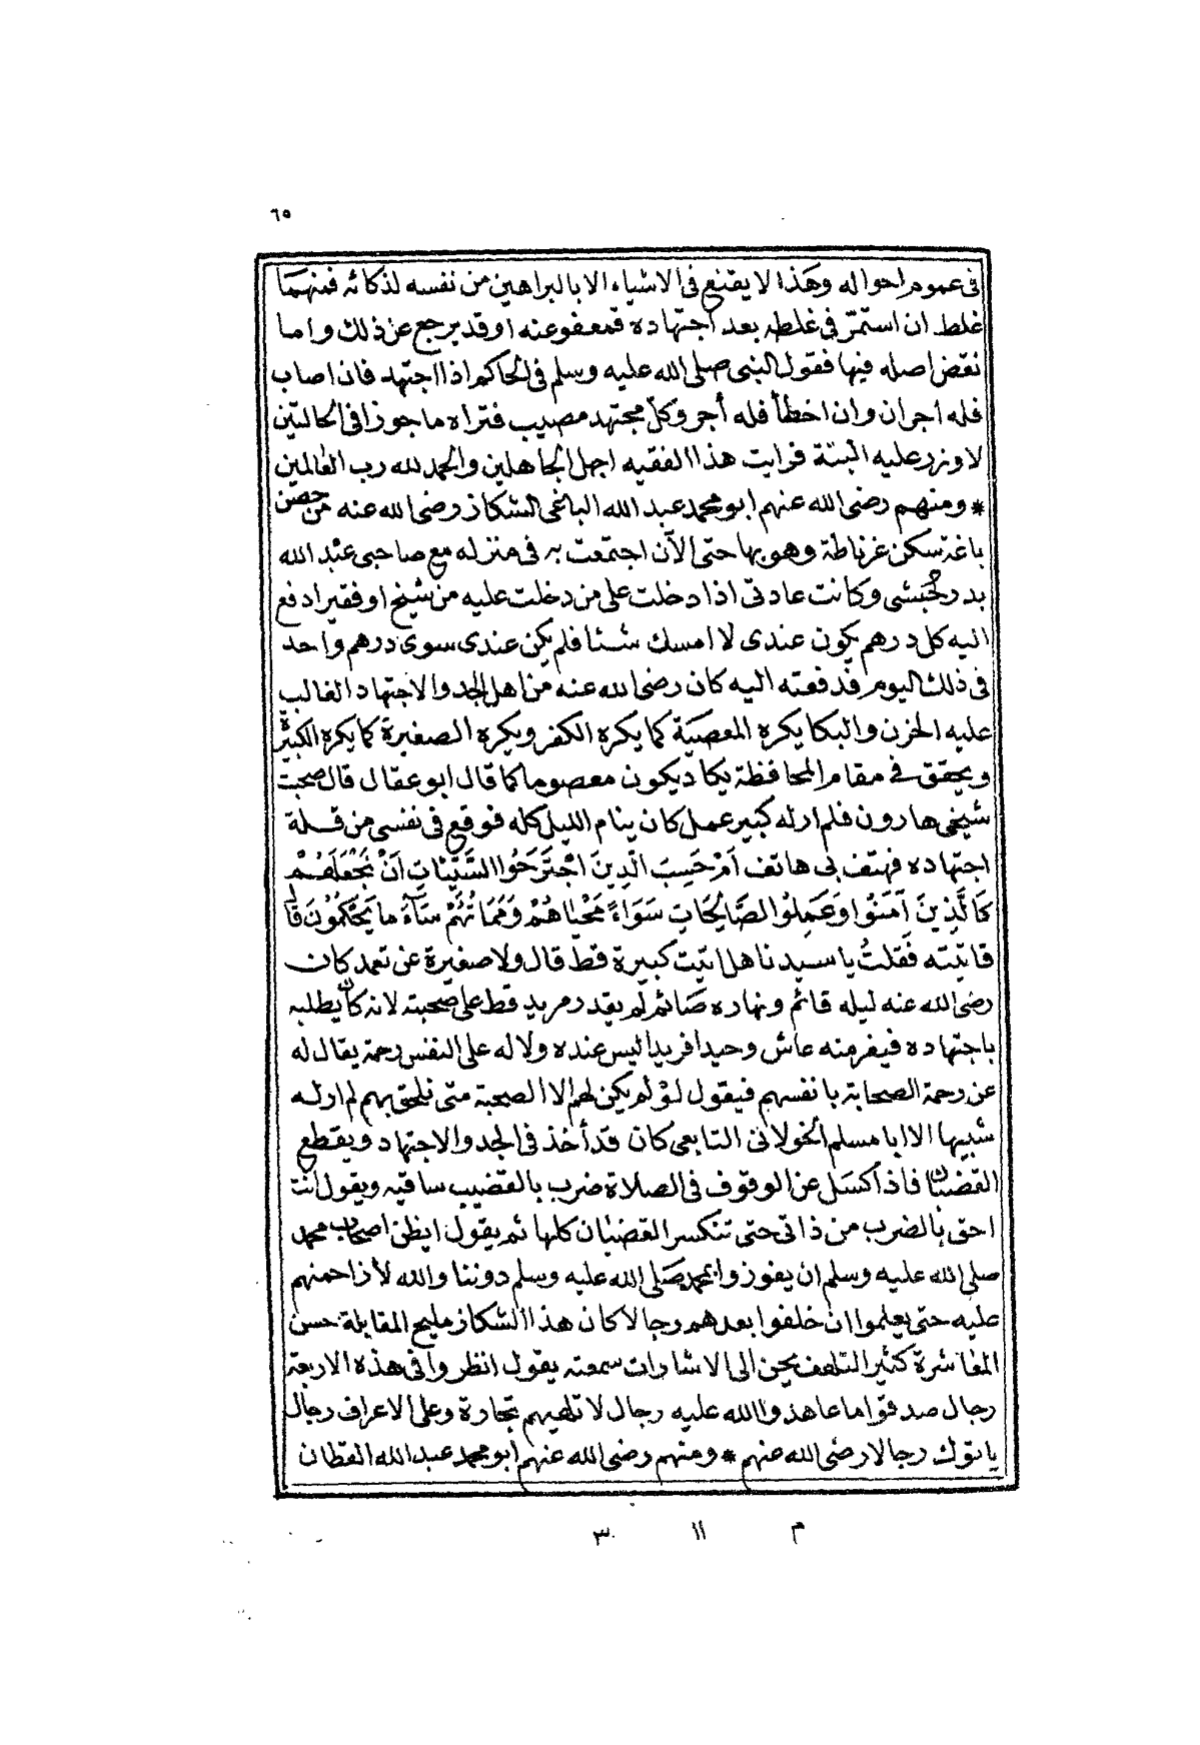 ٦٥
فى عموم احواله وهذا لا يقنع فى الاشياء الا بالبراهين من نفسه لذكائه فمهما
غلط ان استمرّ فى غلطه بعد اجتهاده فمعفو عنه او قد يرجع عن ذلك واما
نقض اصله فيها فقول النبى صلى الله عليه وسلم فى الحاكم اذا اجتهد فان اصاب
فله اجران وان اخطأ فله أجر وكلّ مجتهد مصيب فتراه ماجوزا فى الحالتين
لا وزر عليه البتة فرايت هذا الفقيه اجهل الجاهلين والحمد لله رب العالمين
* ومنهم رضى الله عنهم ابو محمد عبد الله الباغى الشكاز رضى الله عنه من حصن
باغة سكن غرناطة وهو بها حتى الآن اجتمعت به فى منزله مع صاحبى عبد الله
بدر حبشى وكانت عادتى اذا دخلت على من دخلت عليه من شيخ او فقير ادفع
اليه كل درهم يكون عندى لا امسك شيئا فلم يكن عندى سوى درهم واحد
فى ذلك اليوم فدفعته اليه كان رضى الله عنه من اهل الجد والاجتهاد الغالب
عليه الحزن والبكا يكره المعصية كما يكره الكفر ويكره الصغيرة كما يكره الكبيرة
ويحقق فى مقام المحافظة يكاد يكون معصوما كما قال ابو عقال قال صحبت
شيخى هارون فلم ار له كبير عمل كان ينام الليل كله فوقع فى نفسى من قلة
اجتهاده فهتف بى هاتف أَمْ حَسِبَ الَّذِينَ اجْتَرَحُوا السَّيِّئَاتِ أَنْ نَجْعَلَهُمْ
كَالَّذِينَ آمَنُوا وَعَمِلُوا الصَّالِحَاتِ سَوَاءً مَحْيَاهُمْ وَمَمَاتُهُمْ سَآءَ مَا يَحْكُمُونَ قال
فاتيته فقلتُ يا سيدنا هل اتيت كبيرة قط قال ولا صغيرة عن تعمد كان
رضى الله عنه ليله قائم ونهاره صَائم لم يقدر مريد قط على صحبته لانه كان يطلبه
باجتهاده فيفر منه عاش وحيدا فريدا ليس عنده ولا له على النفس رحمة يقال له
عن رحمة الصحابة بانفسهم فيقول لوْ لم يكن لهم الا الصحبة متى نلحق بهم لم ار له
شبيها الا ابا مسلم الخولانى التابعى كان قد أخذ فى الجد والاجتهاد ويقطع
القضبان فاذا كسل عن الوقوف فى الصلاة ضرب بالقضيب ساقيه ويقول انت
احق بالضرب من ذاتى حتى تنكسر القضبان كلها ثم يقول ايظن اصحاب محمد
صلى الله عليه وسلم ان يفوزوا بمحمد صَلى الله عليه وسلم دوننا والله لأزاحمنهم
عليه حتى يعلموا ان خلفوا بعدهم رجالا كان هذا الشكاز مليح المقابلة حسن
المعاشرة كثير التلهف يحن الى الاشارات سمعته يقول انظروا فى هذه الاربعة
رجال صدقوا ما عاهدوا الله عليه رجال لا تلهيهم تجارة وعلى الاعراف رجال
ياتوك رجالا رضى الله عنهم * ومنهم رضى الله عنهم ابو محمد عبد الله القطان
م ١١ ٣